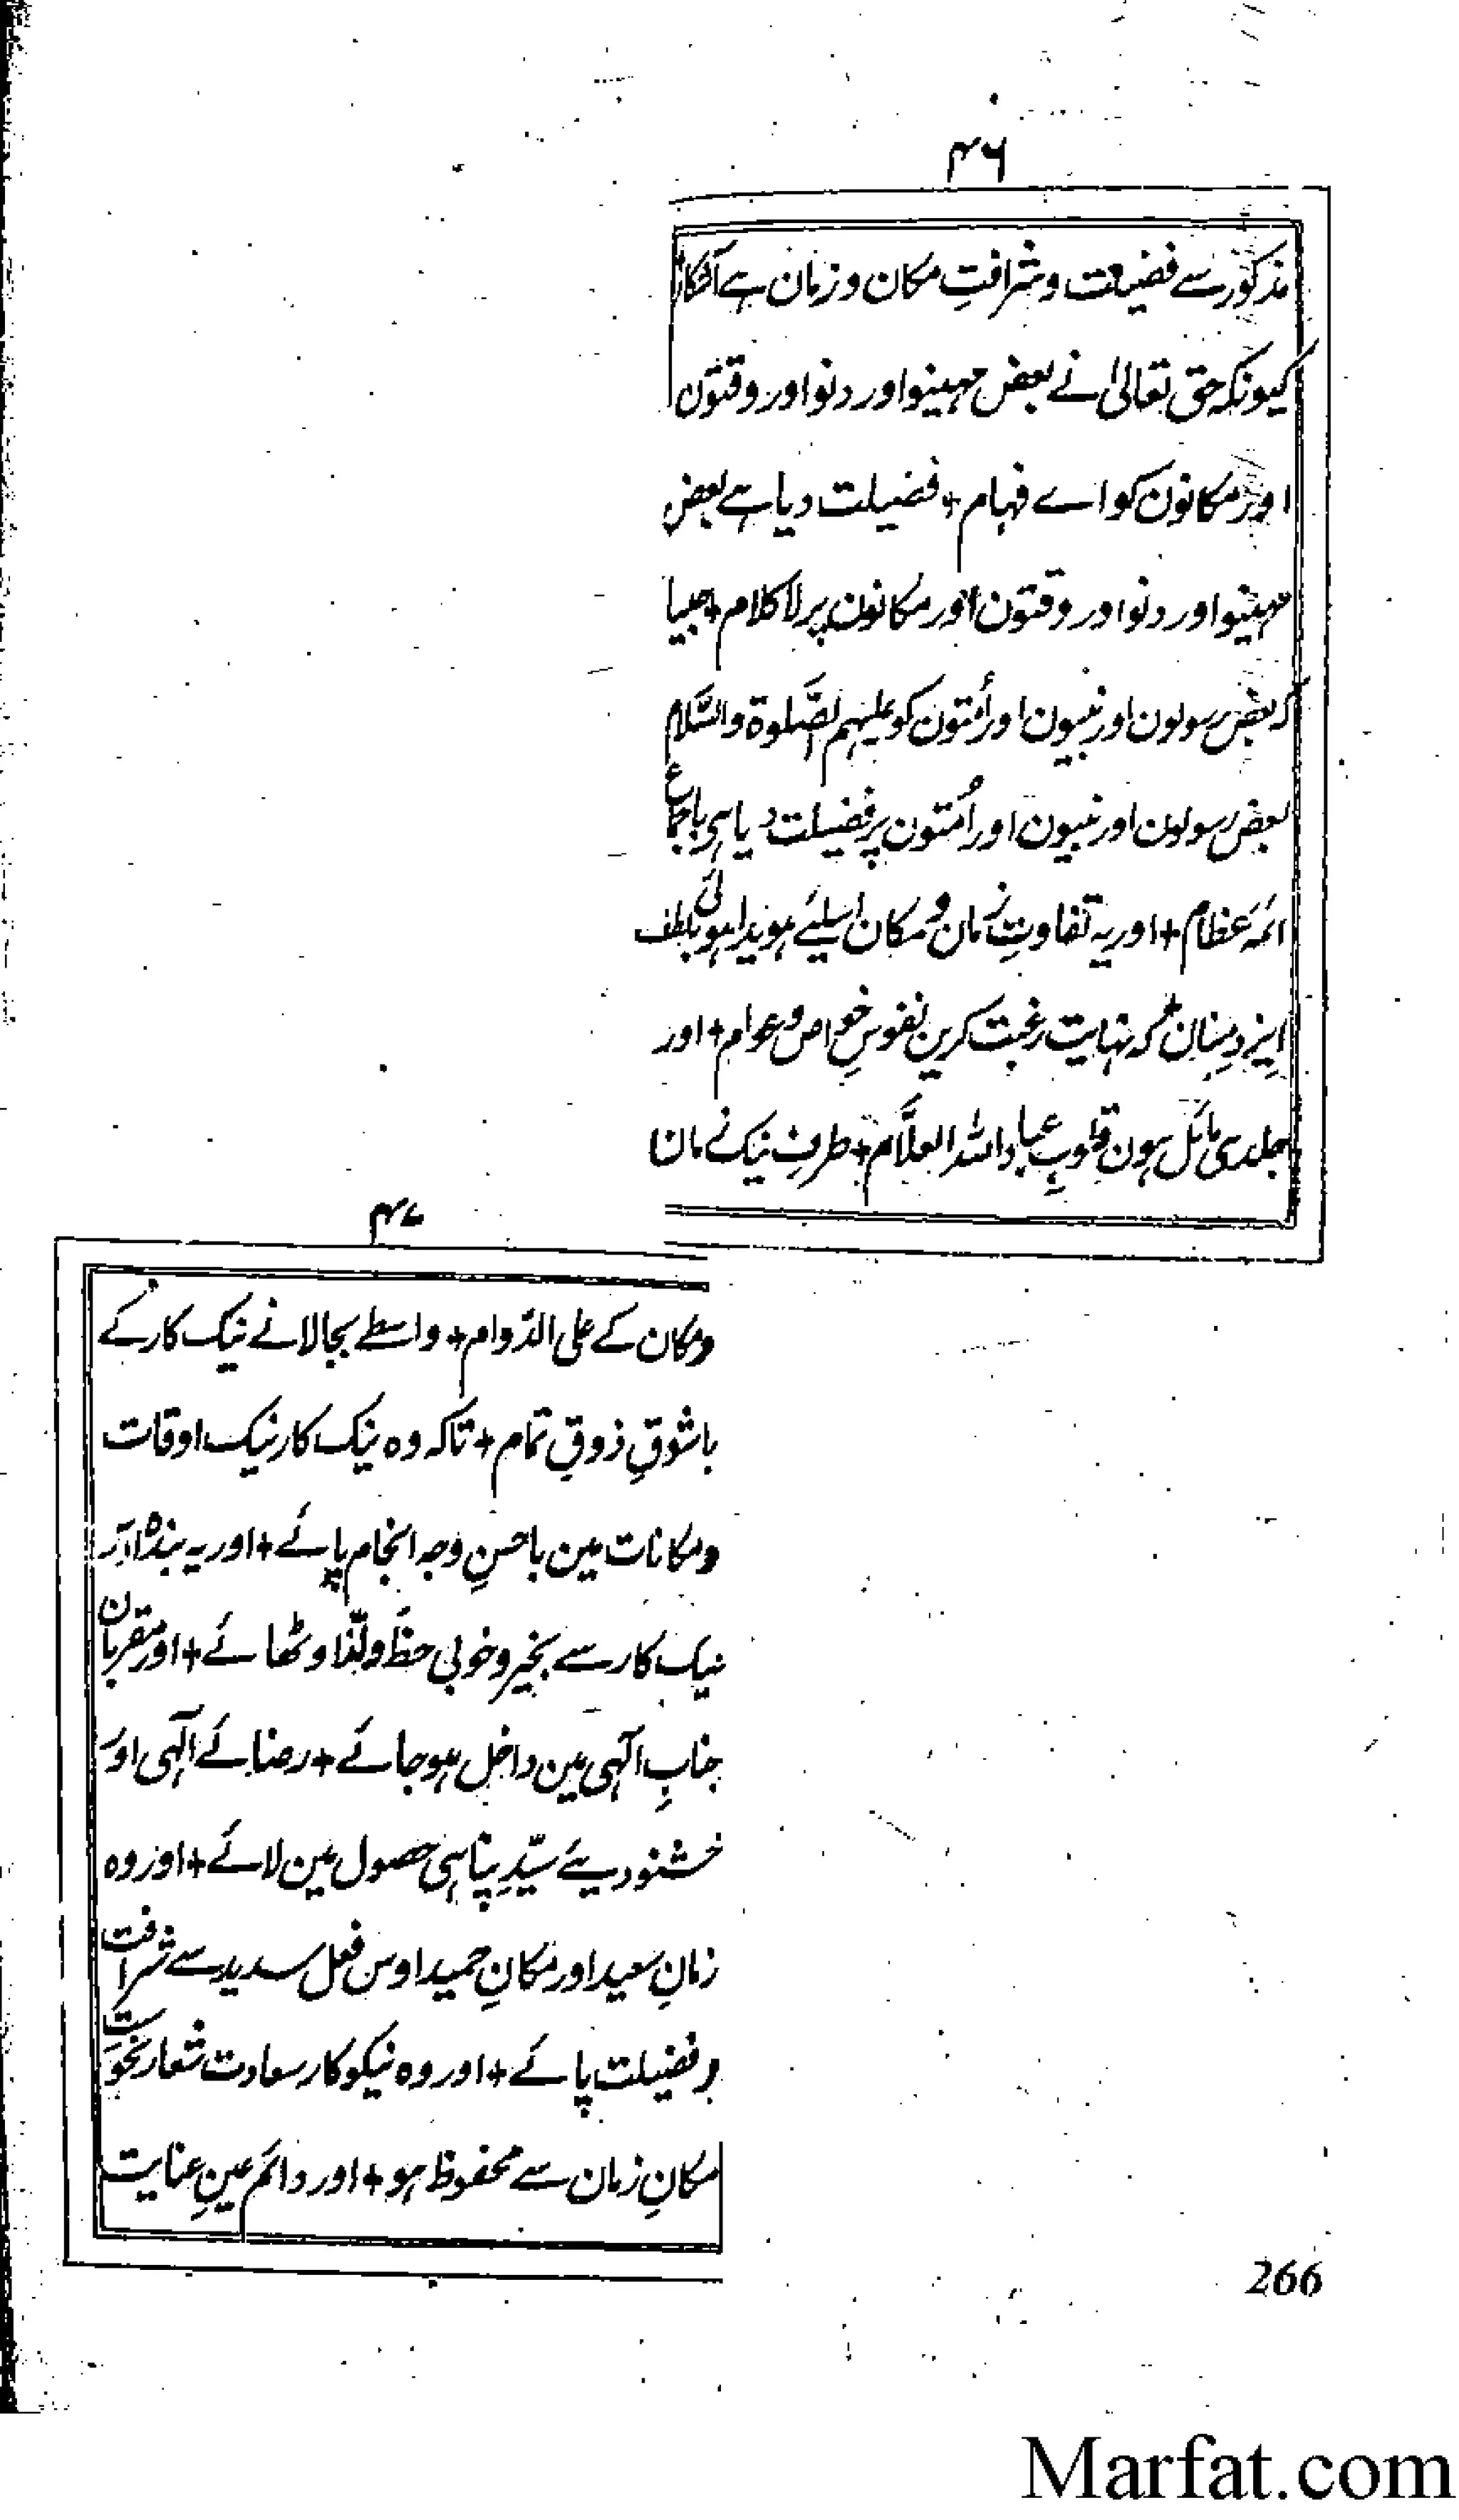 ۴۶
مذکور سے فضیلت و شرافتِ مکان و زمان ہے آشکارا
کیونکہ حق تعالیٰ نے بعض مہینو اور دنو اور وقتون
اور مکانون کو اے فہام + فضیلت دیا ہے بعض
مہینو اور دنو اور وقتون اور مکانون پر لا کلام + جیسا
کہ بعض رسولون اور نبیون اور اُمتون کو علیہم الصَّلوۃ والسَّلام
بعض رسولون اور نبیون اور اُمتون پر فضیلت دیا ہی باجماع
ائمۂ عظام + اور یہ تفاوتِ زمان و مکان اسلیے ہویدا ہوئی بلطف
ایزدِ منان + کہ نہایت رغبت کرین نفوسِ خواص و عوام + اور
جلدی مائل ہون قلوبِ عباد اللہ العلَّام + طرفِ نیک زمان
۴۷
و مکان کے علی الدّوام + واسطے بجالانے نیک کار کے
باشوقِ ذوقِ تمام + تاکہ وہ نیک کار نیک اوقات
و مکانات مین باحسنِ وجہ انجام پائے + اور یہ بندہ
نیک کار سے بخیر و خوبی حظّ و لذّا وٹھائے + اور مقربان
جنابِ الٰہی مین داخل ہوجائے + رضائے الٰہی اور
خشنودیے سیّدِ پناہی حصول مین لائے + اور وہ
زمانِ سعید اور مکانِ حمید اوس فعل سدید سے شرافت
و فضیلت پائے + اور وہ نیکو کار سعادت شعار نحوست
مکانِ زمان سے محفوظ ہو + اور دائم عینِ عنایت
266
Marfat.com